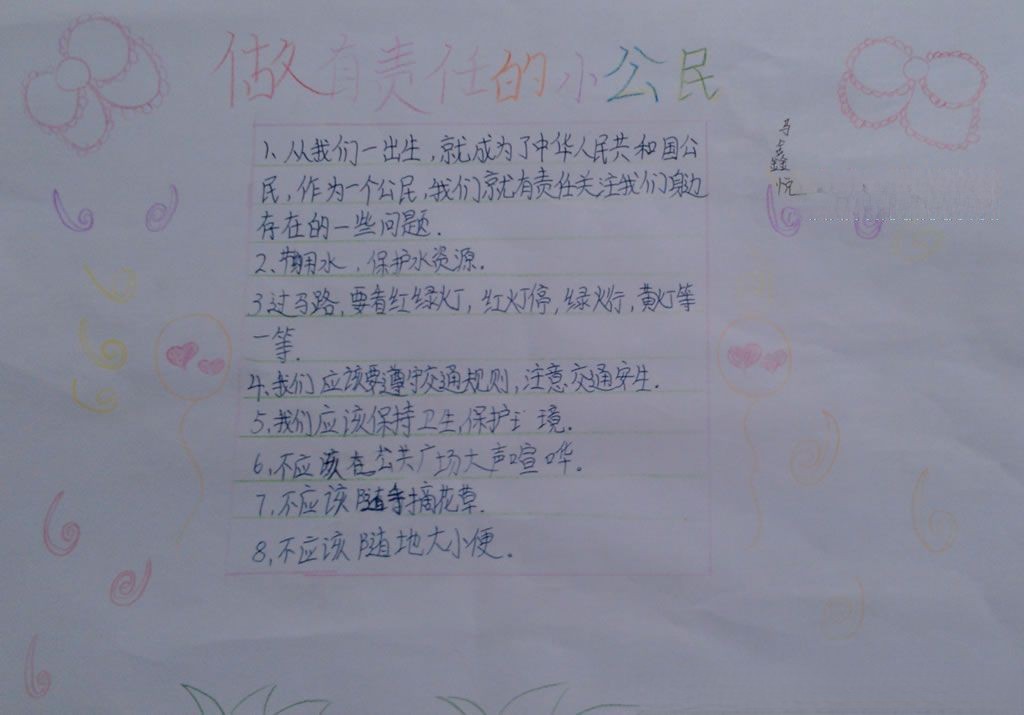 做有责任的小公民
1、从我们一出生,就成为了中华人民共和国公
民,作为一个公民,我们就有责任关注我们身边
存在的一些问题.
2、节用水,保护水资源.
3过马路,要看红绿灯,红灯停,绿灯行,黄灯等
一等.
4.我们应该要遵守交通规则,注意交通安全.
5.我们应该保持卫生,保护环境.
6,不应该在公共广场大声喧哗。
7,不应该随手摘花草.
8,不应该随地大小便.
马鑫悦